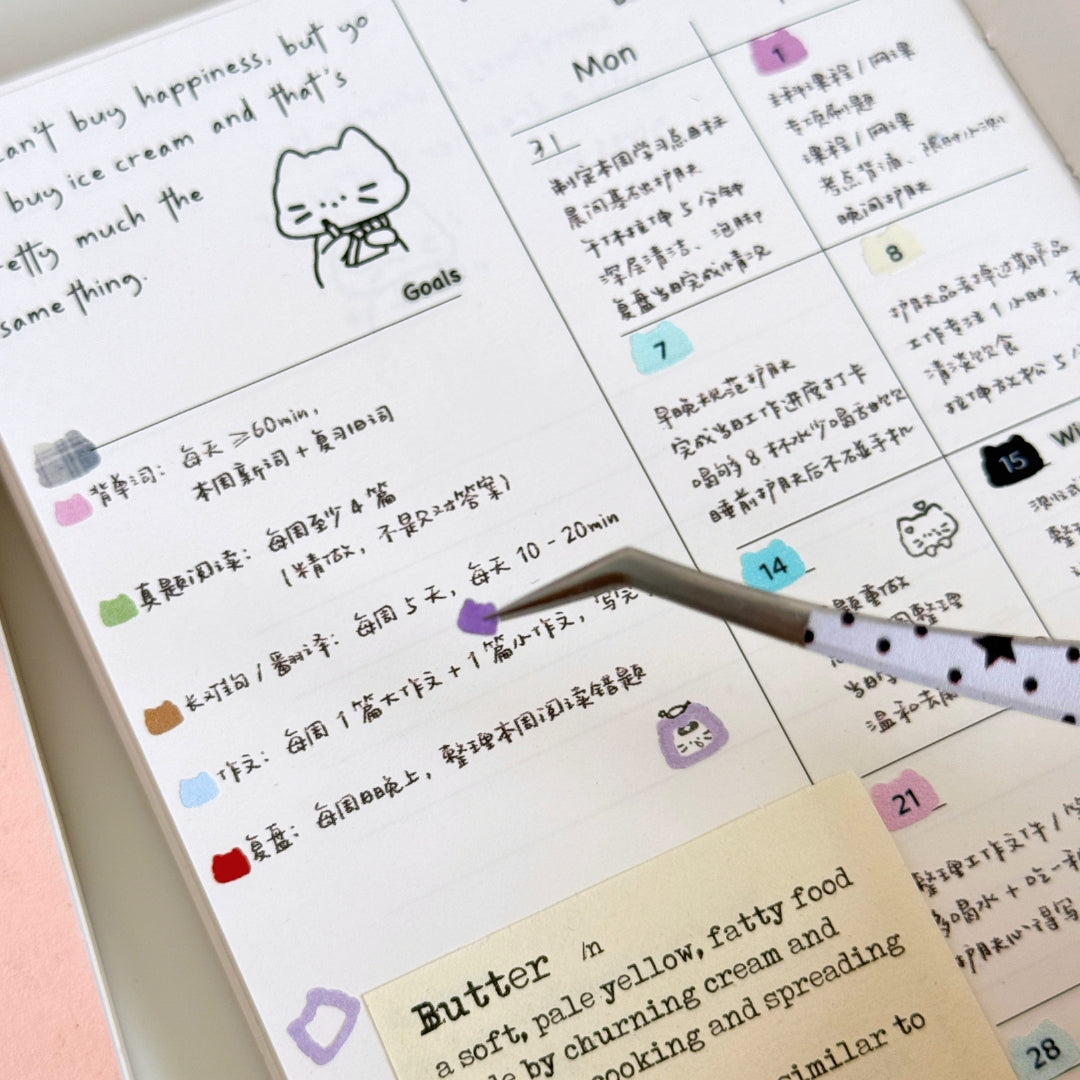 can't buy happiness, but yo
buy ice cream and that's
etty much the
same thing.
Goals
背单词：每天 ≥60min，
本周新词 + 复习旧词
真题阅读：每周至少 4 篇
(精做，不是只对答案)
长难句 / 翻译：每周 5 天，每天 10 - 20min
作文：每周 1 篇大作文 + 1 篇小作文，写完
复盘：每周日晚上，整理本周阅读错题
Butter /n
a soft, pale yellow, fatty food
e by churning cream and
cooking and spreading
similar to
Mon
31
制定本周学习总目标
晨间基础护肤
午休拉伸 5 分钟
深层清洁、泡脚
复盘当日完成情况
1
课程 / 网课
专项刷题
课程 / 网课
考点背诵、限时小测
晚间护肤
7
早晚规范护肤
完成当日工作进度打卡
喝够 8 杯水少喝甜饮
睡前护肤后不碰手机
8
护肤品丢掉过期产品
工作专注 1 小时，
清淡饮食
拉伸放松 5
14
题重做
整理
当日
温和去
15
Wi
整
21
整理工作文件 /
多喝水 + 吃一
护肤心得写
28